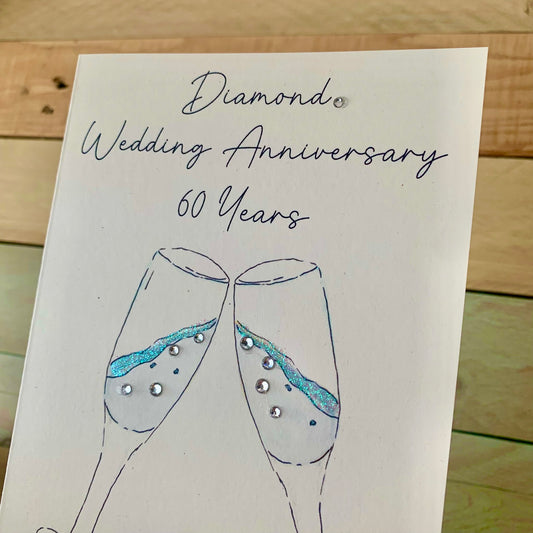 Diamond
Wedding Anniversary
60 Years